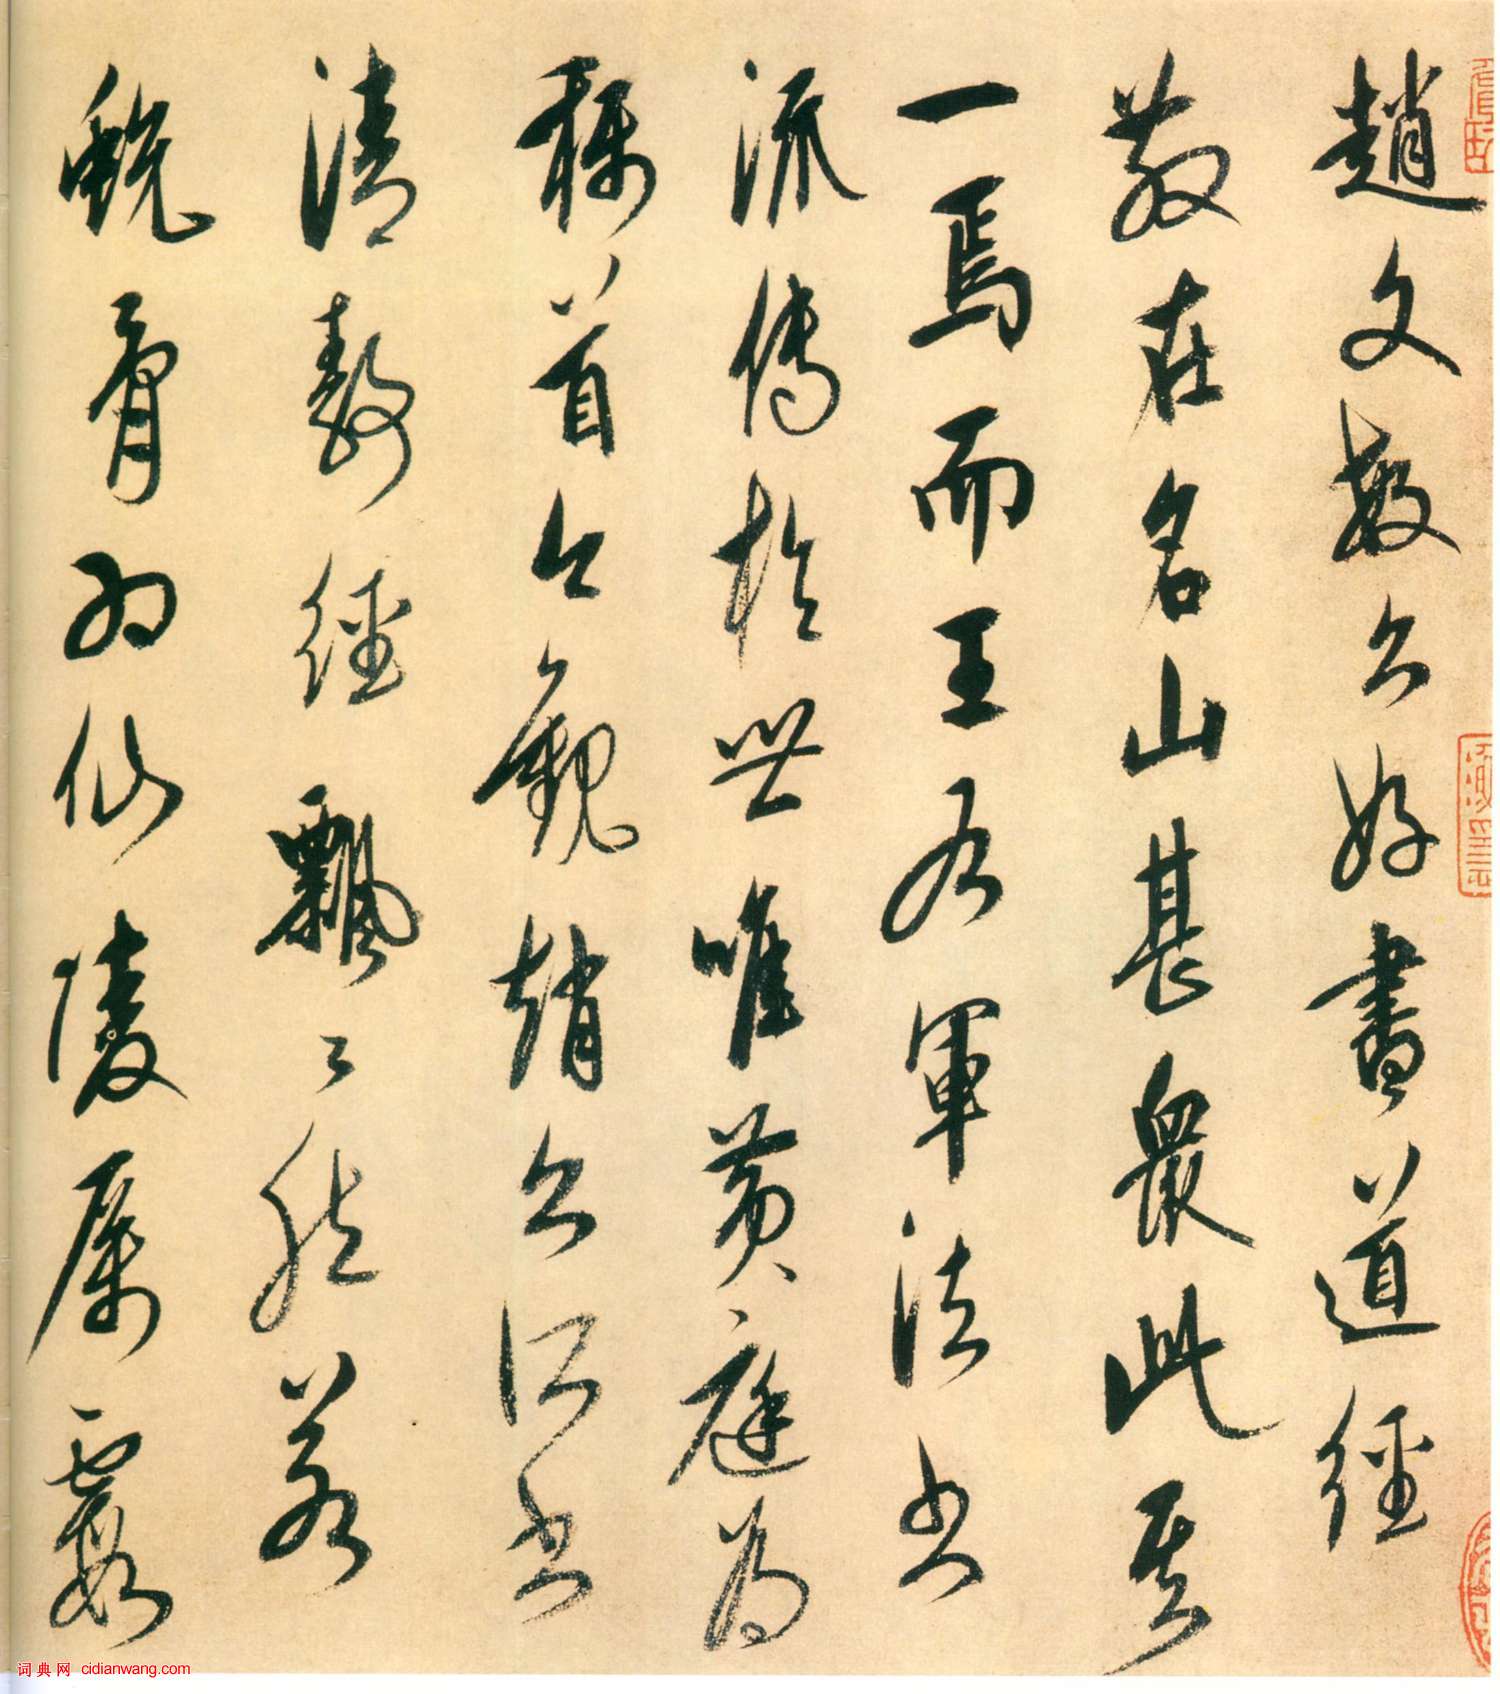 趙文敏公好書道經
散在名山甚衆此其
一焉而王右軍法書
流傳於世唯黃庭為
稱首今觀趙公所書
清靜經飄飄然若
蛻骨羽仙陵厲霞
词典网 cidianwang.com